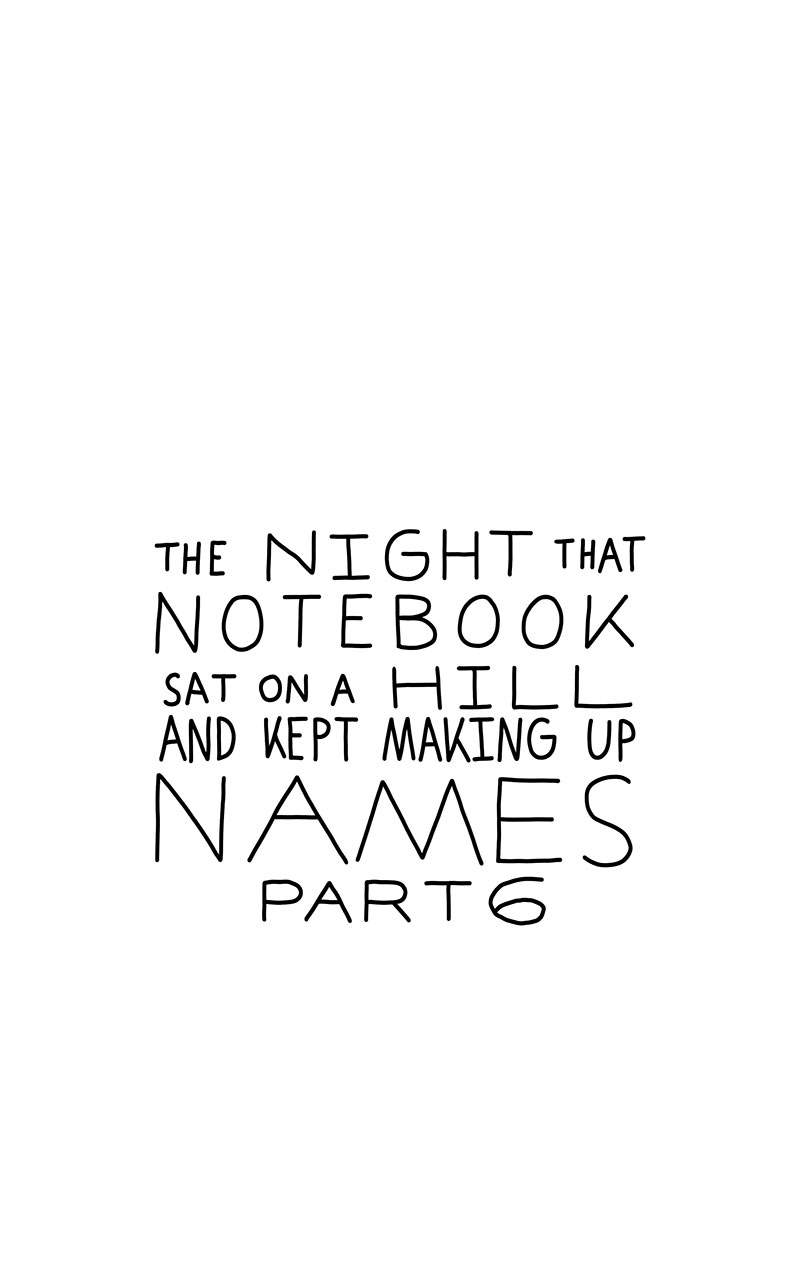 THE NIGHT THAT
NOTEBOOK
SAT ON A HILL
AND KEPT MAKING UP
NAMES
PART 6